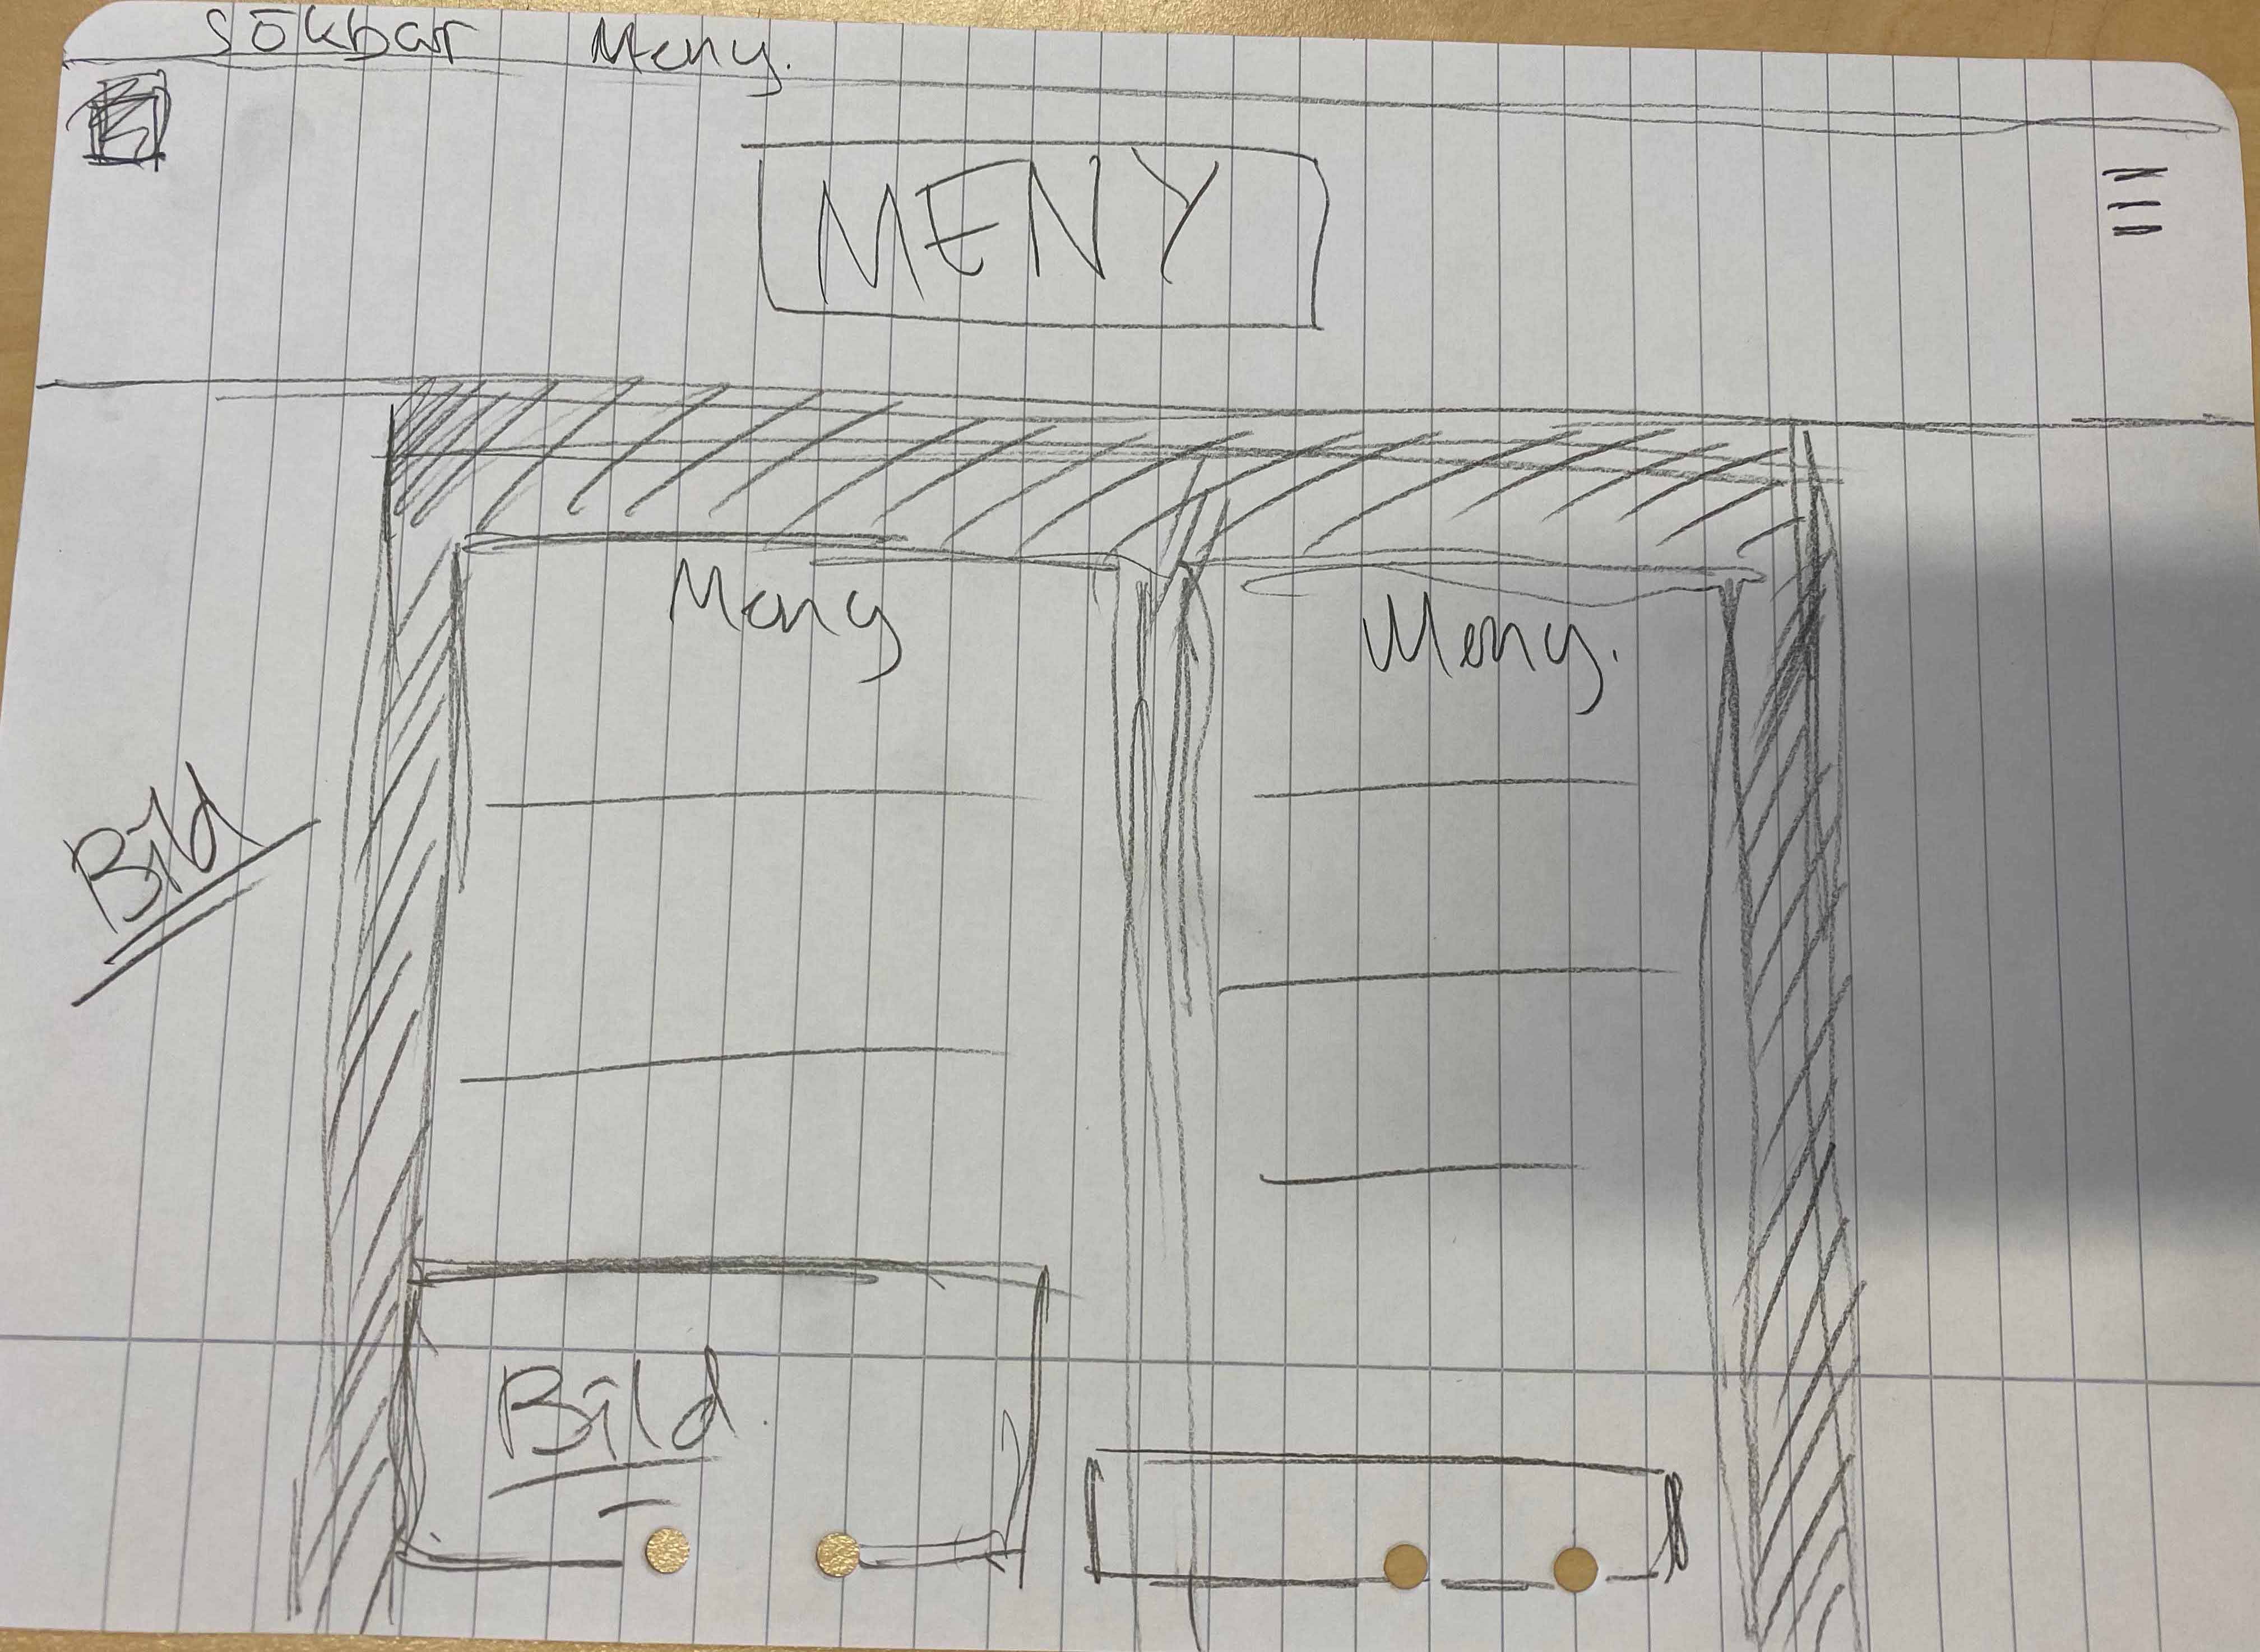 Sökbar Meny.
MENY
Meny
Meny.
Bild
Bild.